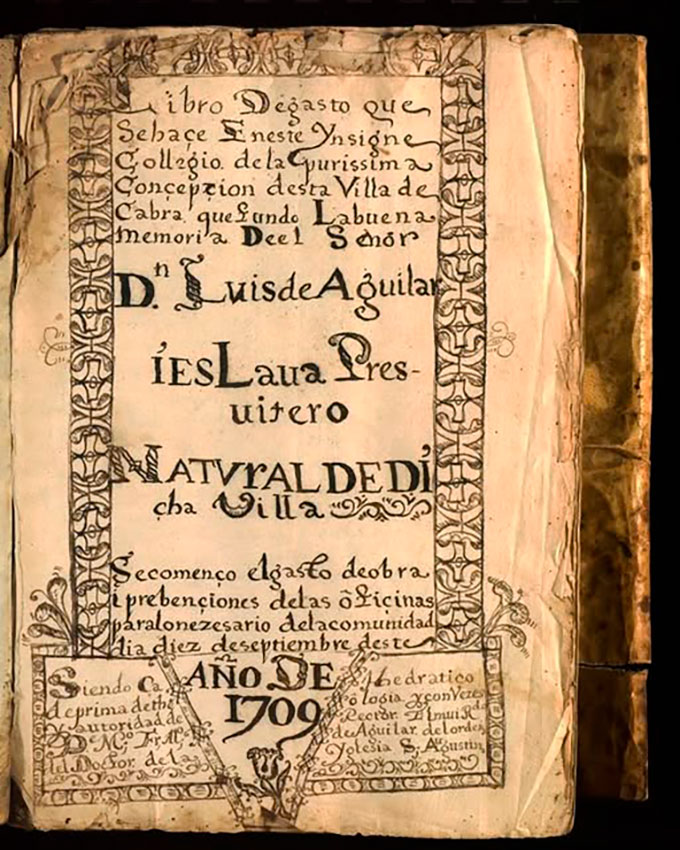 Libro Degasto que
Sehaçe Eneste Ynsigne
Collegio dela purissima
Conçepçion desta Villa de
Cabra que fundo Labuena
memoria Deel Señor
D.n Luis de Aguilar
i EsLava Pres-
vitero
NATVrAL DE Di
cha Villa
Se començo el gasto de obra
i prebençiones delas ofiçinas
paralonezesario dela comunidad
dia diez deseptiembre deste
AÑO DE
1709
Siendo Ca
de prima dethe
autoridad de
De M.o Fr.
ld. Doctor dela
thedratico
ologia y con Vezes
Rector El mui R.do
de Aguilar delorden
Yglesia S. Agustin